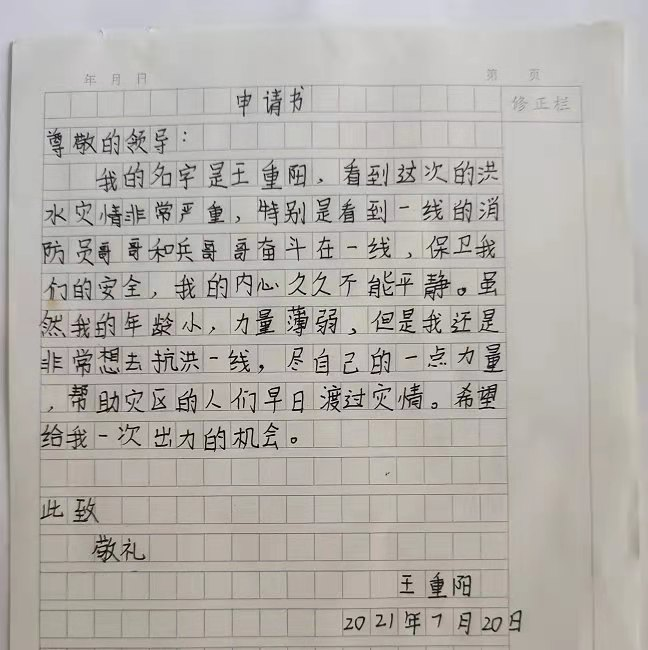 年 月 日 第 页
申请书 修正栏
尊敬的领导：
我的名字是王重阳，看到这次的洪
水灾情非常严重，特别是看到一线的消
防员哥哥和兵哥哥奋斗在一线，保卫我
们的安全，我的内心久久不能平静。虽
然我的年龄小，力量薄弱，但是我还是
非常想去抗洪一线，尽自己的一点力量
，帮助灾区的人们早日渡过灾情。希望
给我一次出力的机会。
此致
敬礼
王重阳
2021年7月20日